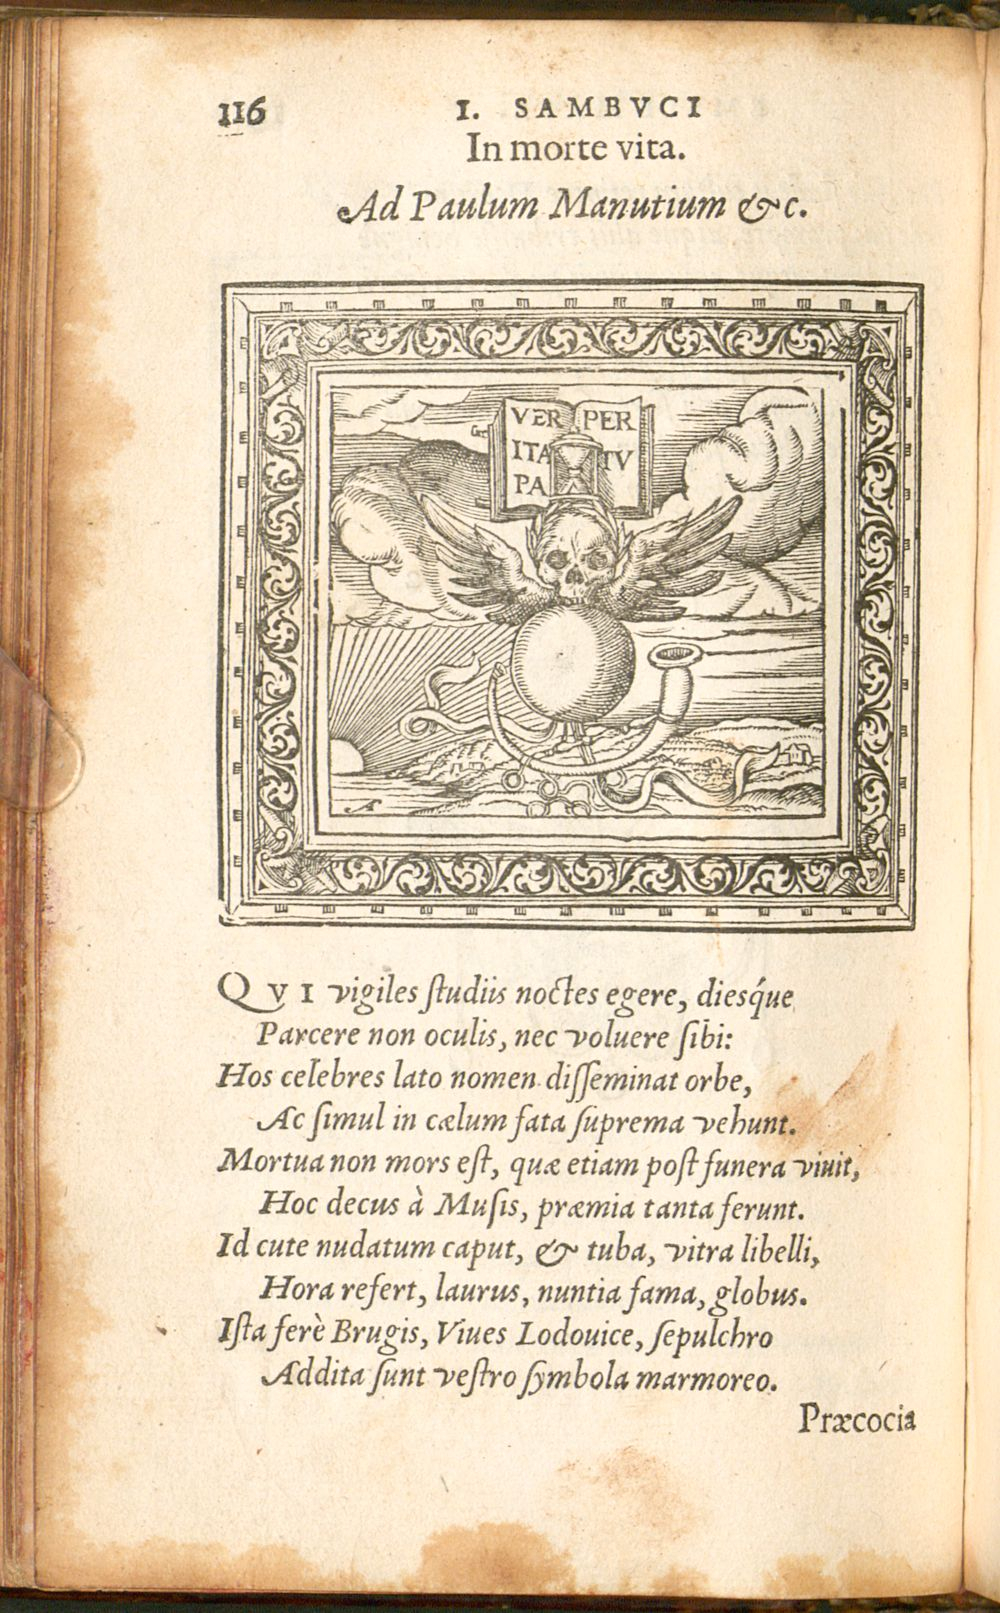 116
I. SAMBVCI
In morte vita.
Ad Paulum Manutium &c.
VER PER
ITA TV
PA
A
QVI vigiles ſtudiis noctes egere, dieśque
Parcere non oculis, nec voluere ſibi:
Hos celebres lato nomen diſſeminat orbe,
Ac ſimul in cælum fata ſuprema vehunt.
Mortua non mors eſt, quæ etiam poſt funera viuit,
Hoc decus à Muſis, præmia tanta ferunt.
Id cute nudatum caput, & tuba, vitra libelli,
Hora refert, laurus, nuntia fama, globus.
Iſta ferè Brugis, Viues Lodouice, ſepulchro
Addita ſunt veſtro ſymbola marmoreo.
Præcocia